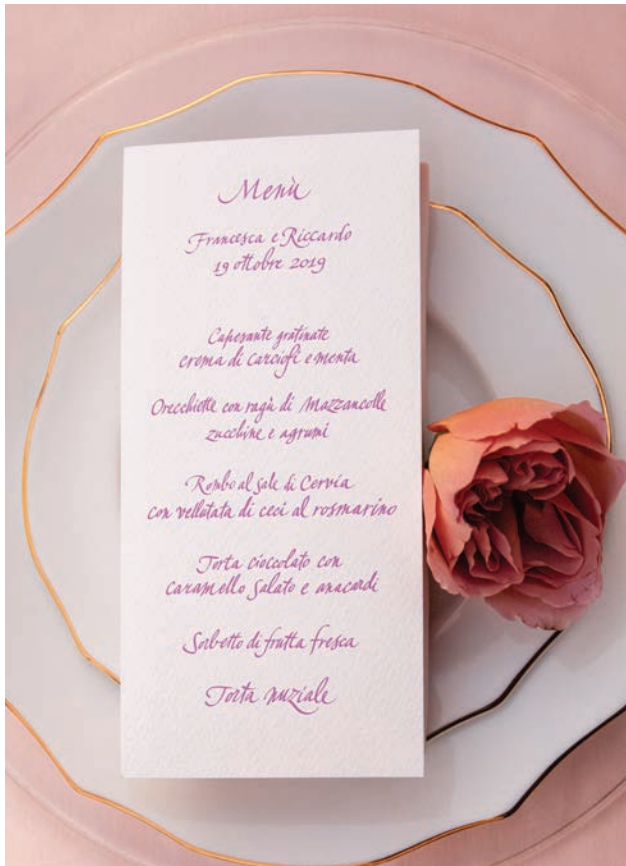 Menù
Francesca e Riccardo
19 ottobre 2019
Capesante gratinate
crema di carciofi e menta
Orecchiette con ragù di Mazzancolle
zucchine e agrumi
Rombo al sale di Cervia
con vellutata di ceci al rosmarino
Torta cioccolato con
caramello salato e anacardi
Sorbetto di frutta fresca
Torta nuziale